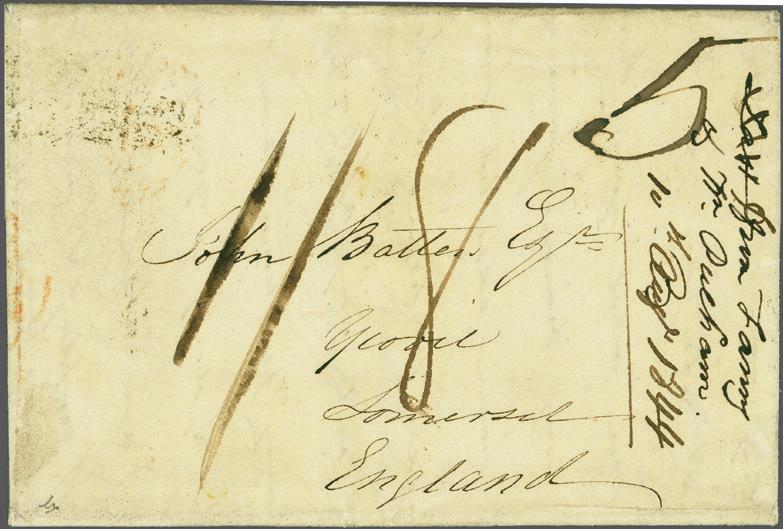 5
1/8
John Batten Esqre
Yeovil
Somerset
England
Fanny
10th Augt 1844